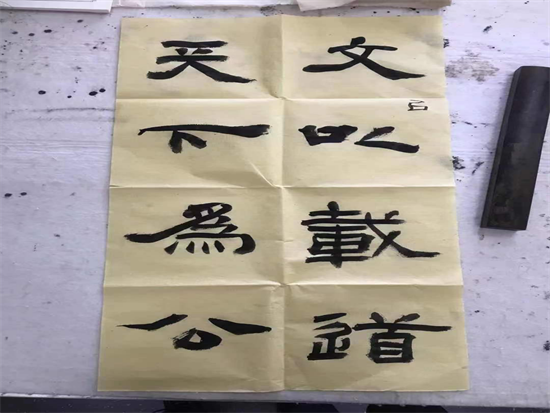 文以載道
天下爲公